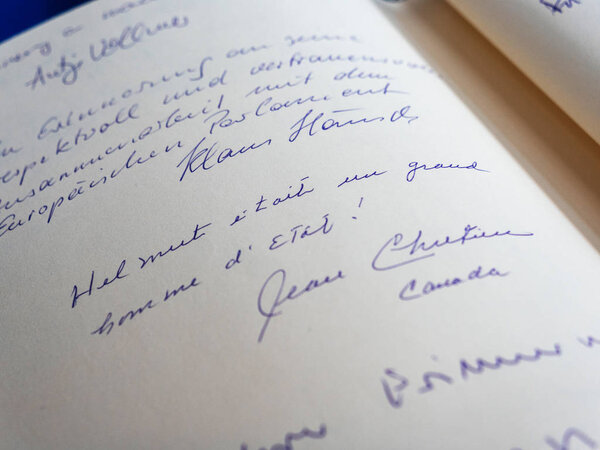 Antje Vollmer
Erinnerung an seine
respektvoll und vertrauensvolle
Zusammenarbeit mit dem
Europäischen Parlament
Klaus Hänsch
Helmut était un grand
homme d'ETAT !
Jean Chrétien
Canada